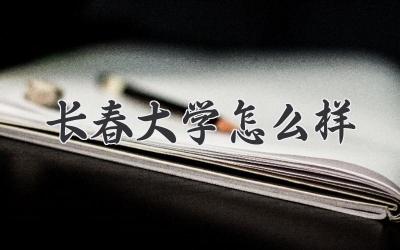 长春大学怎么样